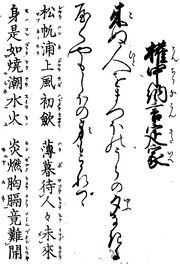 權中納言定家
来ぬ人をまつほのうらの夕なきに
やくやもしほの身もこかれつゝ
松帆浦上風初歛　薄暮待人々未來
身是如燒潮水火　炎燃胸膈竟難開